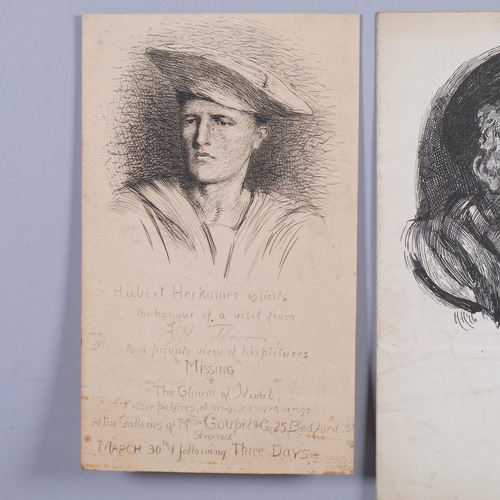 Hubert Herkomer solicits
the honour of a visit from
to a private view of his pictures
"MISSING"
+
"The Gloom of Idwal"
& other pictures, etchings & engravings
At the Galleries of Messrs Goupil & Co, 25, Bedford St
Strand
MARCH 30th & following Three Days